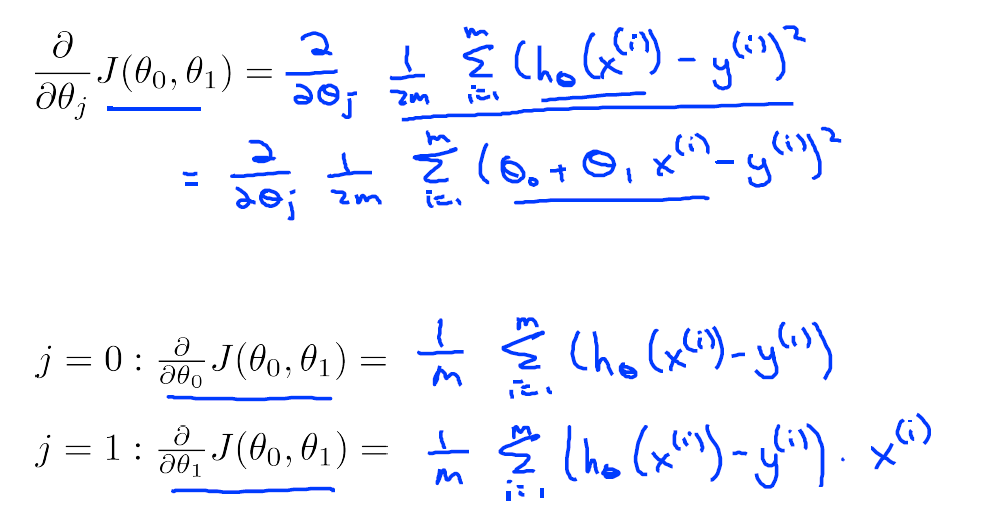 ∂/∂θ_j J(θ_0, θ_1) = ∂/∂θ_j 1/2m Σ_{i=1}^{m} (h_θ(x^{(i)}) - y^{(i)})^2
= ∂/∂θ_j 1/2m Σ_{i=1}^{m} (θ_0 + θ_1 x^{(i)} - y^{(i)})^2
j = 0 : ∂/∂θ_0 J(θ_0, θ_1) = 1/m Σ_{i=1}^{m} (h_θ(x^{(i)}) - y^{(i)})
j = 1 : ∂/∂θ_1 J(θ_0, θ_1) = 1/m Σ_{i=1}^{m} (h_θ(x^{(i)}) - y^{(i)}) · x^{(i)}